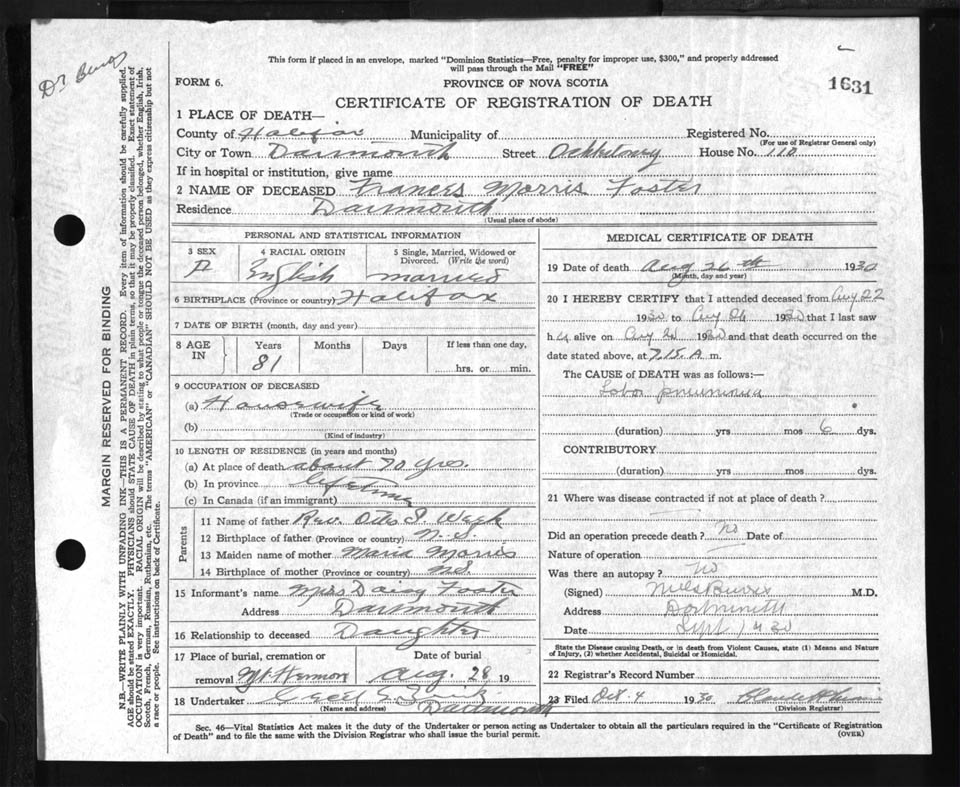 This form if placed in an envelope, marked "Dominion Statistics—Free, penalty for improper use, $300," and properly addressed
will pass through the Mail "FREE"
FORM 6. PROVINCE OF NOVA SCOTIA 1631
CERTIFICATE OF REGISTRATION OF DEATH
1 PLACE OF DEATH—
County of Halifax Municipality of Registered No.
(For use of Registrar General only)
City or Town Darmouth Street House No. 110
If in hospital or institution, give name
2 NAME OF DECEASED Frances Morris Foster
Residence Darmouth
(Usual place of abode)
PERSONAL AND STATISTICAL INFORMATION
3 SEX F
4 RACIAL ORIGIN English
5 Single, Married, Widowed or Divorced. (Write the word) married
6 BIRTHPLACE (Province or country) Halifax
7 DATE OF BIRTH (month, day and year)
8 AGE IN Years Months Days If less than one day,
81 hrs. or min.
9 OCCUPATION OF DECEASED
(a) Housewife
(Trade or occupation or kind of work)
(b)
(Kind of industry)
10 LENGTH OF RESIDENCE (in years and months)
(a) At place of death about 70 yrs.
(b) In province lifetime
(c) In Canada (if an immigrant)
Parents
11 Name of father Rev. Otto S. Week
12 Birthplace of father (Province or country) N.S.
13 Maiden name of mother Maria Morris
14 Birthplace of mother (Province or country) N.S.
15 Informant's name Mrs Daisy Foster
Address Darmouth
16 Relationship to deceased Daughter
17 Place of burial, cremation or Date of burial
removal Mt Hermon Aug. 28 19
18 Undertaker Cecil E. Darmouth
(Name and address)
MEDICAL CERTIFICATE OF DEATH
19 Date of death Aug 26th 1930
(Month, day and year)
20 I HEREBY CERTIFY that I attended deceased from Aug 22
1930 to Aug 26 1930 that I last saw
h alive on Aug 1930 and that death occurred on the
date stated above, at 7.15 A m.
The CAUSE of DEATH was as follows:—
Lobar pneumonia
(duration) yrs mos 6 dys.
CONTRIBUTORY
(duration) yrs mos dys.
21 Where was disease contracted if not at place of death?
Did an operation precede death? No Date of
Nature of operation
Was there an autopsy? No
(Signed) M.D.
Address Dartmouth
Date Sept 1930
State the Disease causing Death, or in death from Violent Causes, state (1) Means and Nature
of Injury, (2) whether Accidental, Suicidal or Homicidal.
22 Registrar's Record Number
23 Filed Oct. 4 1930
(Division Registrar)
Sec. 46—Vital Statistics Act makes it the duty of the Undertaker or person acting as Undertaker to obtain all the particulars required in the "Certificate of Registration
of Death" and to file the same with the Division Registrar who shall issue the burial permit. (OVER)
MARGIN RESERVED FOR BINDING
N.B.—WRITE PLAINLY WITH UNFADING INK—THIS IS A PERMANENT RECORD. Every item of information should be carefully supplied.
AGE should be stated EXACTLY. PHYSICIANS should STATE CAUSE OF DEATH in plain terms, so that it may be properly classified. Exact statement of
OCCUPATION is very important. RACIAL ORIGIN will be described by stating to what people or tongue the deceased person belonged, whether English, Irish,
Scotch, French, German, Russian, Ruthenian, etc. The terms "AMERICAN" or "CANADIAN" SHOULD NOT BE USED as they express citizenship but not
a race or people. See instructions on back of Certificate.